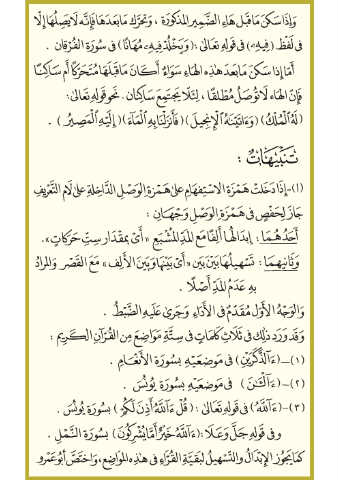 وَإِذَا سَكَنَ مَا قَبْلَ هَاءِ الضَّمِيرِ المَذْكُورَةِ ، وَتَحَرَّكَ مَا بَعْدَهَا فَإِنَّهُ لَا يَصِلُهَا إِلَّا
فِي لَفْظِ ﴿فِيهِۦ﴾ فِي قَوْلِهِ تَعَالَىٰ : ﴿وَيَخْلُدْ فِيهِۦ مُهَانًا﴾ فِي سُورَةِ الفُرْقَانِ .
أَمَّا إِذَا سَكَنَ مَا بَعْدَ هَٰذِهِ الهَاءِ سَوَاءٌ أَكَانَ مَا قَبْلَهَا مُتَحَرِّكًا أَمْ سَاكِنًا
فَإِنَّ الهَاءَ لَا تُوصَلُ مُطْلَقًا ، لِئَلَّا يَجْتَمِعَ سَاكِنَانِ . نَحْوُ قَوْلِهِ تَعَالَىٰ :
﴿لَهُ ٱلْمُلْكُ﴾ ﴿وَءَاتَيْنَٰهُ ٱلْإِنجِيلَ﴾ ﴿فَأَنزَلْنَا بِهِ ٱلْمَآءَ﴾ ﴿إِلَيْهِ ٱلْمَصِيرُ﴾ .
تَنْبِيهَاتٌ :
(١)- إِذَا دَخَلَتْ هَمْزَةُ الِاسْتِفْهَامِ عَلَىٰ هَمْزَةِ الوَصْلِ الدَّاخِلَةِ عَلَىٰ لَامِ التَّعْرِيفِ
جَازَ لِحَفْصٍ فِي هَمْزَةِ الوَصْلِ وَجْهَانِ :
أَحَدُهُمَا : إِبْدَالُهَا أَلِفًا مَعَ المَدِّ المُشْبَعِ «أَيْ بِمِقْدَارِ سِتِّ حَرَكَاتٍ» .
وَثَانِيهِمَا : تَسْهِيلُهَا بَيْنَ بَيْنَ «أَيْ بَيْنَهَا وَبَيْنَ الأَلِفِ» مَعَ القَصْرِ وَالمُرَادُ
بِهِ عَدَمُ المَدِّ أَصْلًا .
وَالوَجْهُ الأَوَّلُ مُقَدَّمٌ فِي الأَدَاءِ وَجَرَىٰ عَلَيْهِ الضَّبْطُ .
وَقَدْ وَرَدَ ذَٰلِكَ فِي ثَلَاثِ كَلِمَاتٍ فِي سِتَّةِ مَوَاضِعَ مِنَ القُرْآنِ الكَرِيمِ :
(١)- ﴿ءَآلذَّكَرَيْنِ﴾ فِي مَوْضِعَيْهِ بِسُورَةِ الأَنْعَامِ .
(٢)- ﴿ءَآلْـَٰٔنَ﴾ فِي مَوْضِعَيْهِ بِسُورَةِ يُونُسَ .
(٣)- ﴿ءَآللَّهُ﴾ فِي قَوْلِهِ تَعَالَىٰ : ﴿قُلْ ءَآللَّهُ أَذِنَ لَكُمْ﴾ بِسُورَةِ يُونُسَ .
وَفِي قَوْلِهِ جَلَّ وَعَلَا : ﴿ءَآللَّهُ خَيْرٌ أَمَّا يُشْرِكُونَ﴾ بِسُورَةِ النَّمْلِ .
كَمَا يَجُوزُ الإِبْدَالُ وَالتَّسْهِيلُ لِبَقِيَّةِ القُرَّاءِ فِي هَٰذِهِ المَوَاضِعِ ، وَاخْتَصَّ أَبُو عَمْرٍو